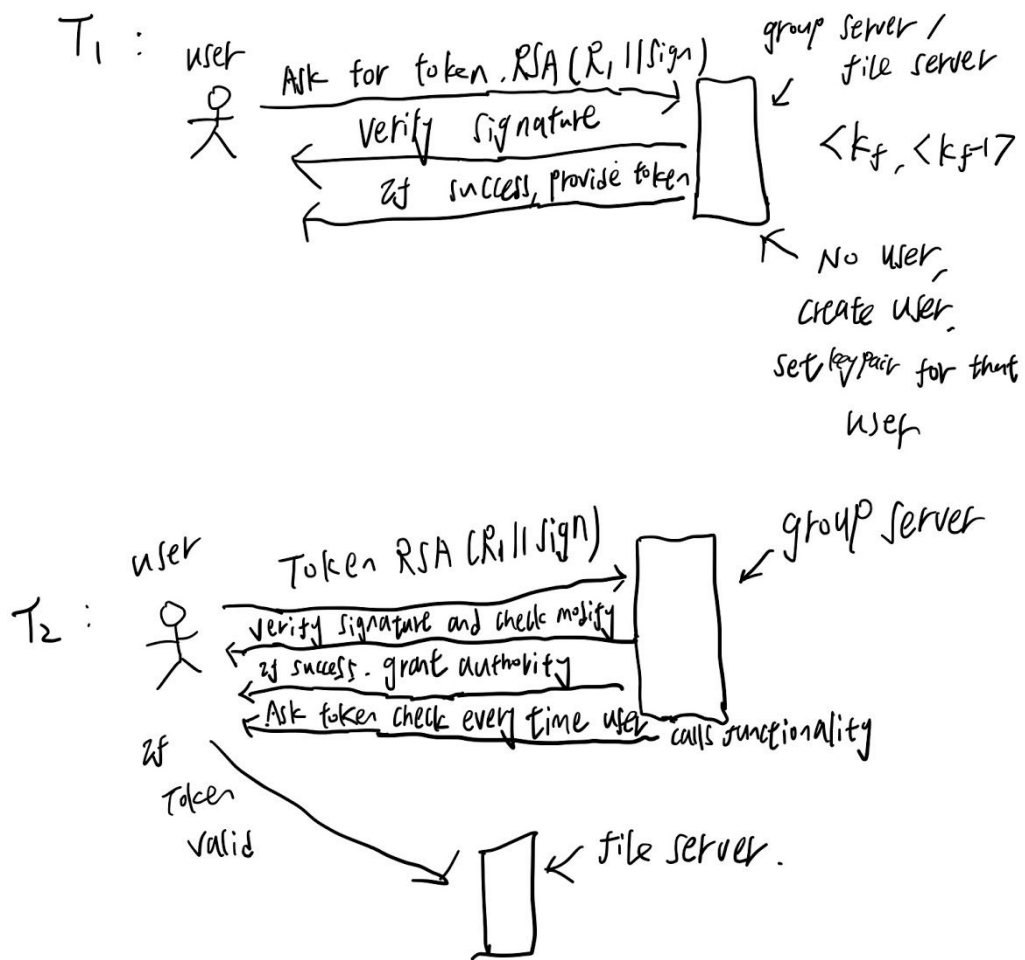 T₁ :
user
Ask for token. RSA(R₁||sign)
Verify signature
If success, provide token
group server /
file server
<kf, <kf-1>
No user,
create user,
set keypair for that
user
T₂ :
user
Token RSA (R₁||sign)
group server
verify signature and check modify
If success. grant authority
Ask token check every time user calls functionality
If
Token
valid
file server.